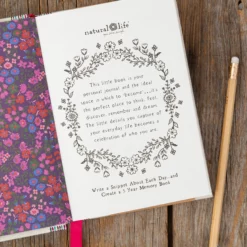 natural life
This little book is your
personal journal and the ideal
space in which to become ....it's
the perfect place to think, feel,
discover, remember and dream.
The little details you capture of
your everyday life becomes a
celebration of who you are.
Write a Snippet About Each Day...and
Create a 5 Year Memory Book